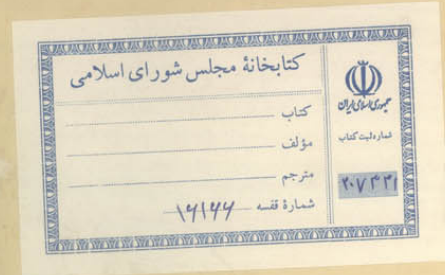 کتابخانهٔ مجلس شورای اسلامی
کتاب
مؤلف
مترجم
شمارهٔ قفسه ۱۶۱۶۶
جمهوری اسلامی ایران
شماره ثبت کتاب
۲۰۷۴۴۱